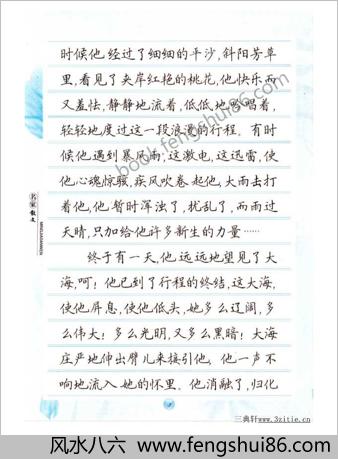 时候他经过了细细的平沙，斜阳芳草
里，看见了夹岸红艳的桃花，他快乐而
又羞怯，静静地流着，低低地吟唱着，
轻轻地度过这一段浪漫的行程。有时
候他遇到暴风雨，这激电，这迅雷，使
他心魂惊骇，疾风吹卷起他，大雨击打
着他，他暂时浑浊了，扰乱了，而雨过
天晴，只加给他许多新生的力量……
终于有一天，他远远地望见了大
海，呵！他已到了行程的终结，这大海，
使他屏息，使他低头，她多么辽阔，多
么伟大！多么光明，又多么黑暗！大海
庄严地伸出臂儿来接引他，他一声不
响地流入她的怀里。他消融了，归化
名家散文
book.fengshui86.com
三典轩www.3zitie.cn
风水八六 www.fengshui86.com